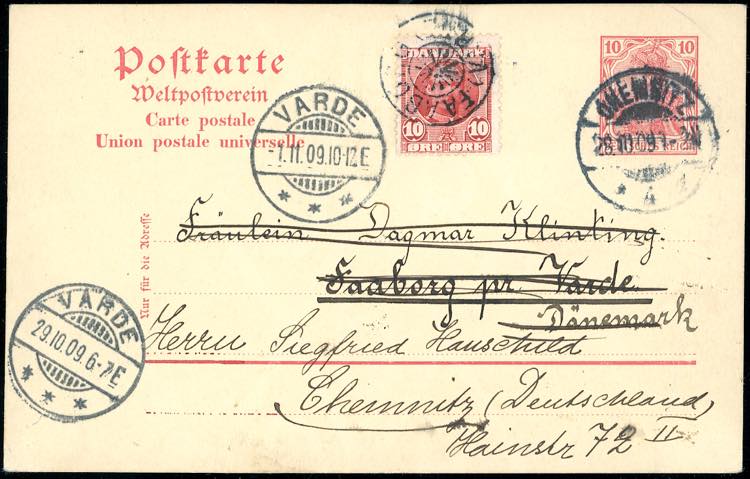 Postkarte
Weltpostverein
Carte postale
Union postale universelle
VARDE
-1.11.09.10-12E
DANMARK
10 10
ØRE ØRE
10 10
CHEMNITZ
28.10.09
* 4
Nur für die Adresse
Fräulein Dagmar Klinting.
Faaborg pr. Varde.
Dänemark
VARDE
29.10.09.6-7E
Herrn Siegfried Hauschild
Chemnitz (Deutschland)
Hainstr 72 II